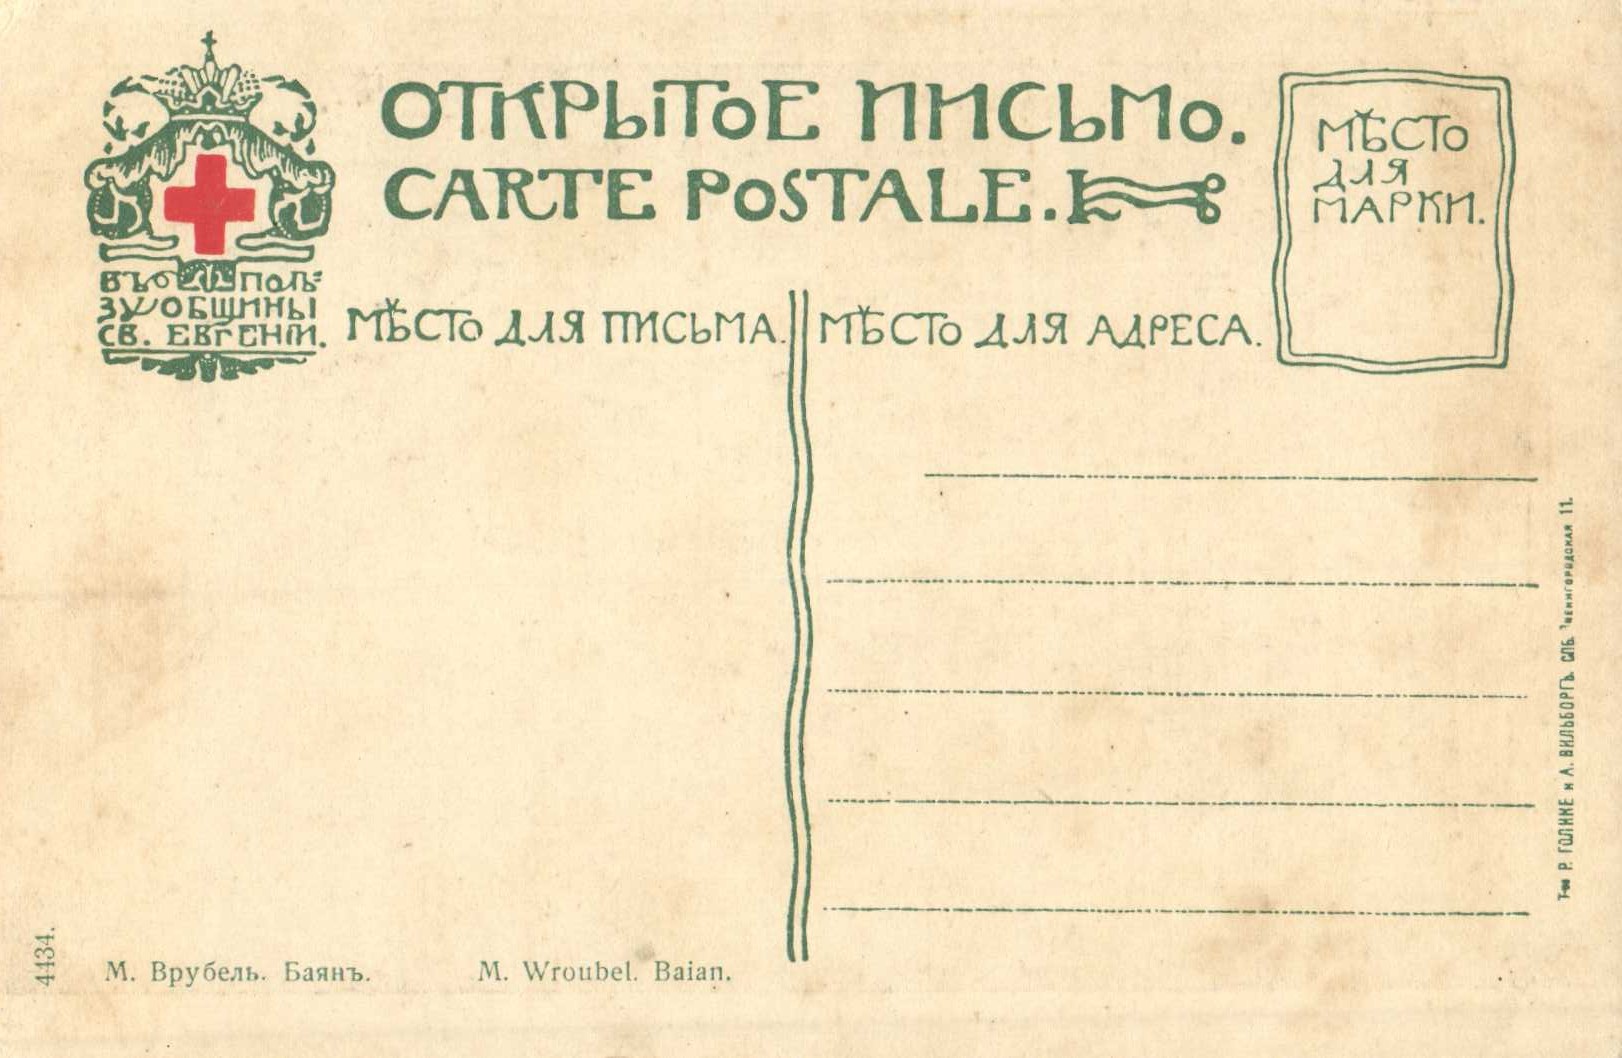 ОТКРЫТОЕ ПИСЬМО.
CARTE POSTALE.
МѢСТО
ДЛЯ
МАРКИ.
ВЪ ПОЛЬ-
ЗУ ОБЩИНЫ
СВ. ЕВГЕНІИ.
МѢСТО ДЛЯ ПИСЬМА.
МѢСТО ДЛЯ АДРЕСА.
Т-во Р. ГОЛИКЕ и А. ВИЛЬБОРГЪ. СПБ. 11.
4434.
М. Врубель. Баянъ.
M. Wroubel. Baian.